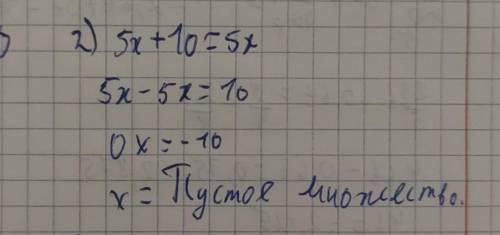 2) 5x+10=5x
5x-5x=10
0x=-10
x= Пустое множество.